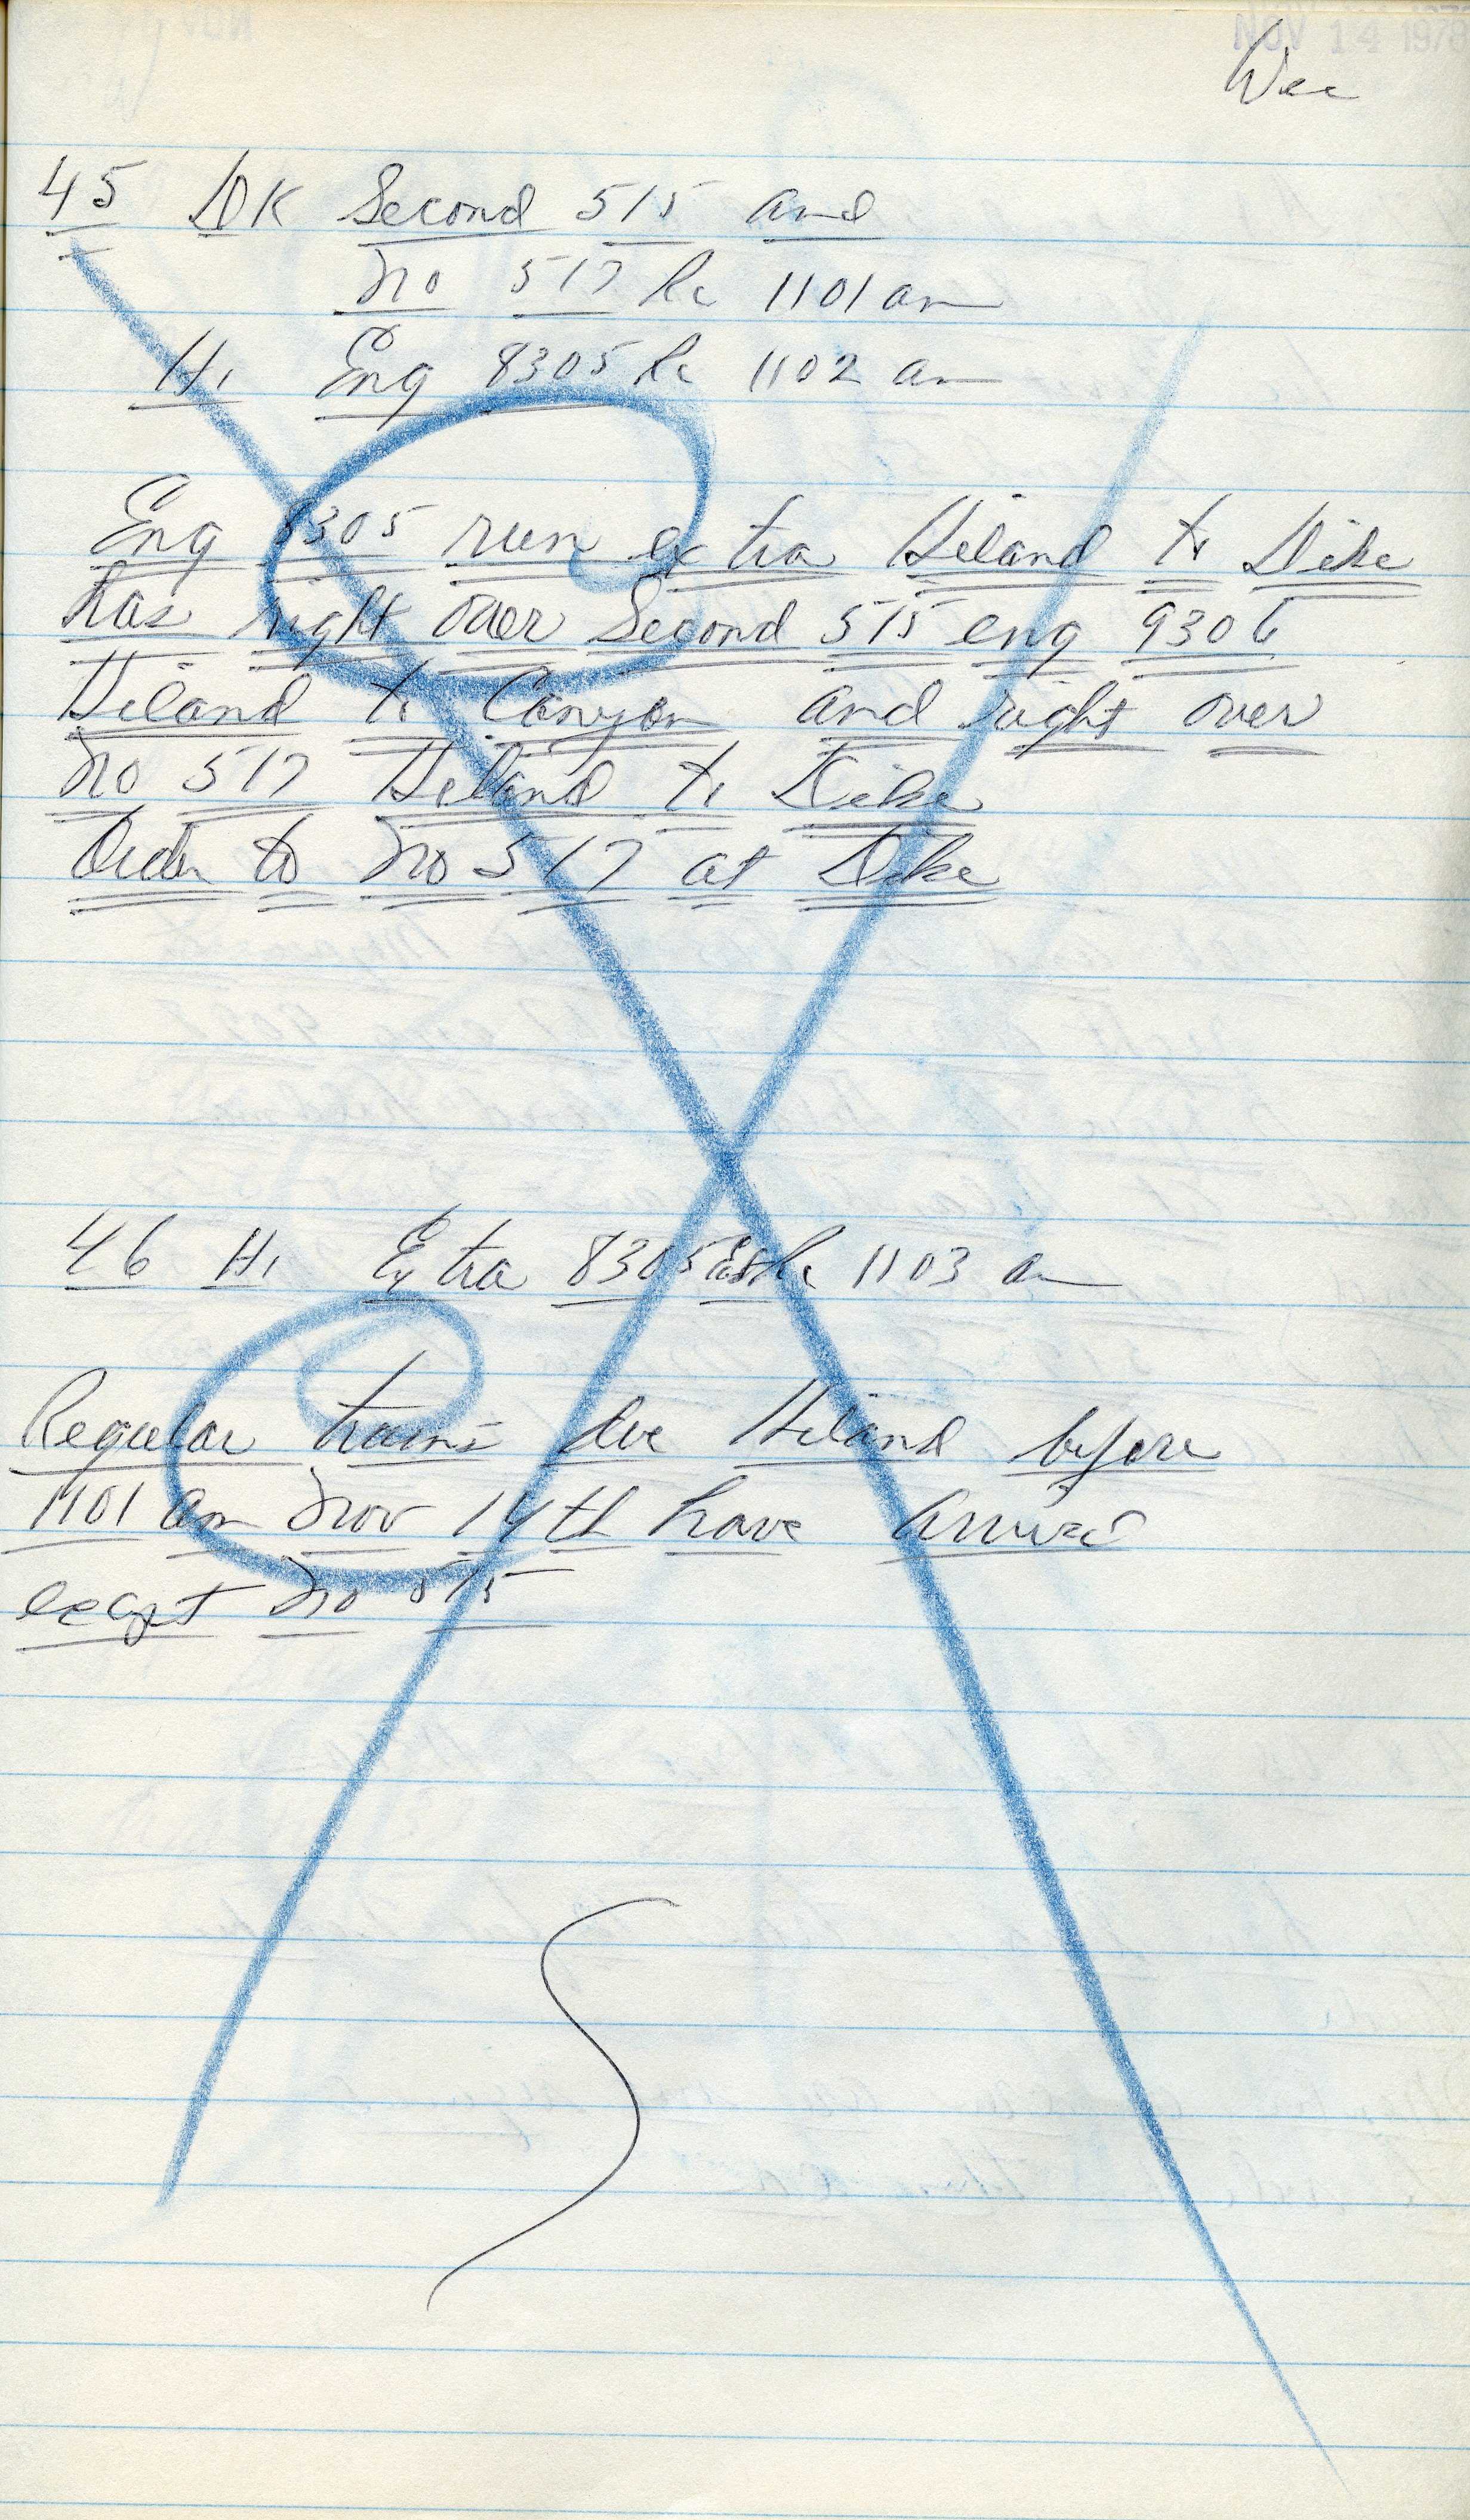 NOV 14 1978
45 DK Second 515 and
No 517 Rc 1101 am
Hi Eng 8305 Rc 1102 am
Eng 8305 run extra Hiland to Dike
has right over Second 515 eng 9306
Hiland to Canyon and right over
No 517 Hiland to Dike
Order to No 517 at Dike
46 Hi Extra 8305 East Rc 1103 am
Regular trains due Hiland before
1101 am Nov 14th have arrived
except No 515